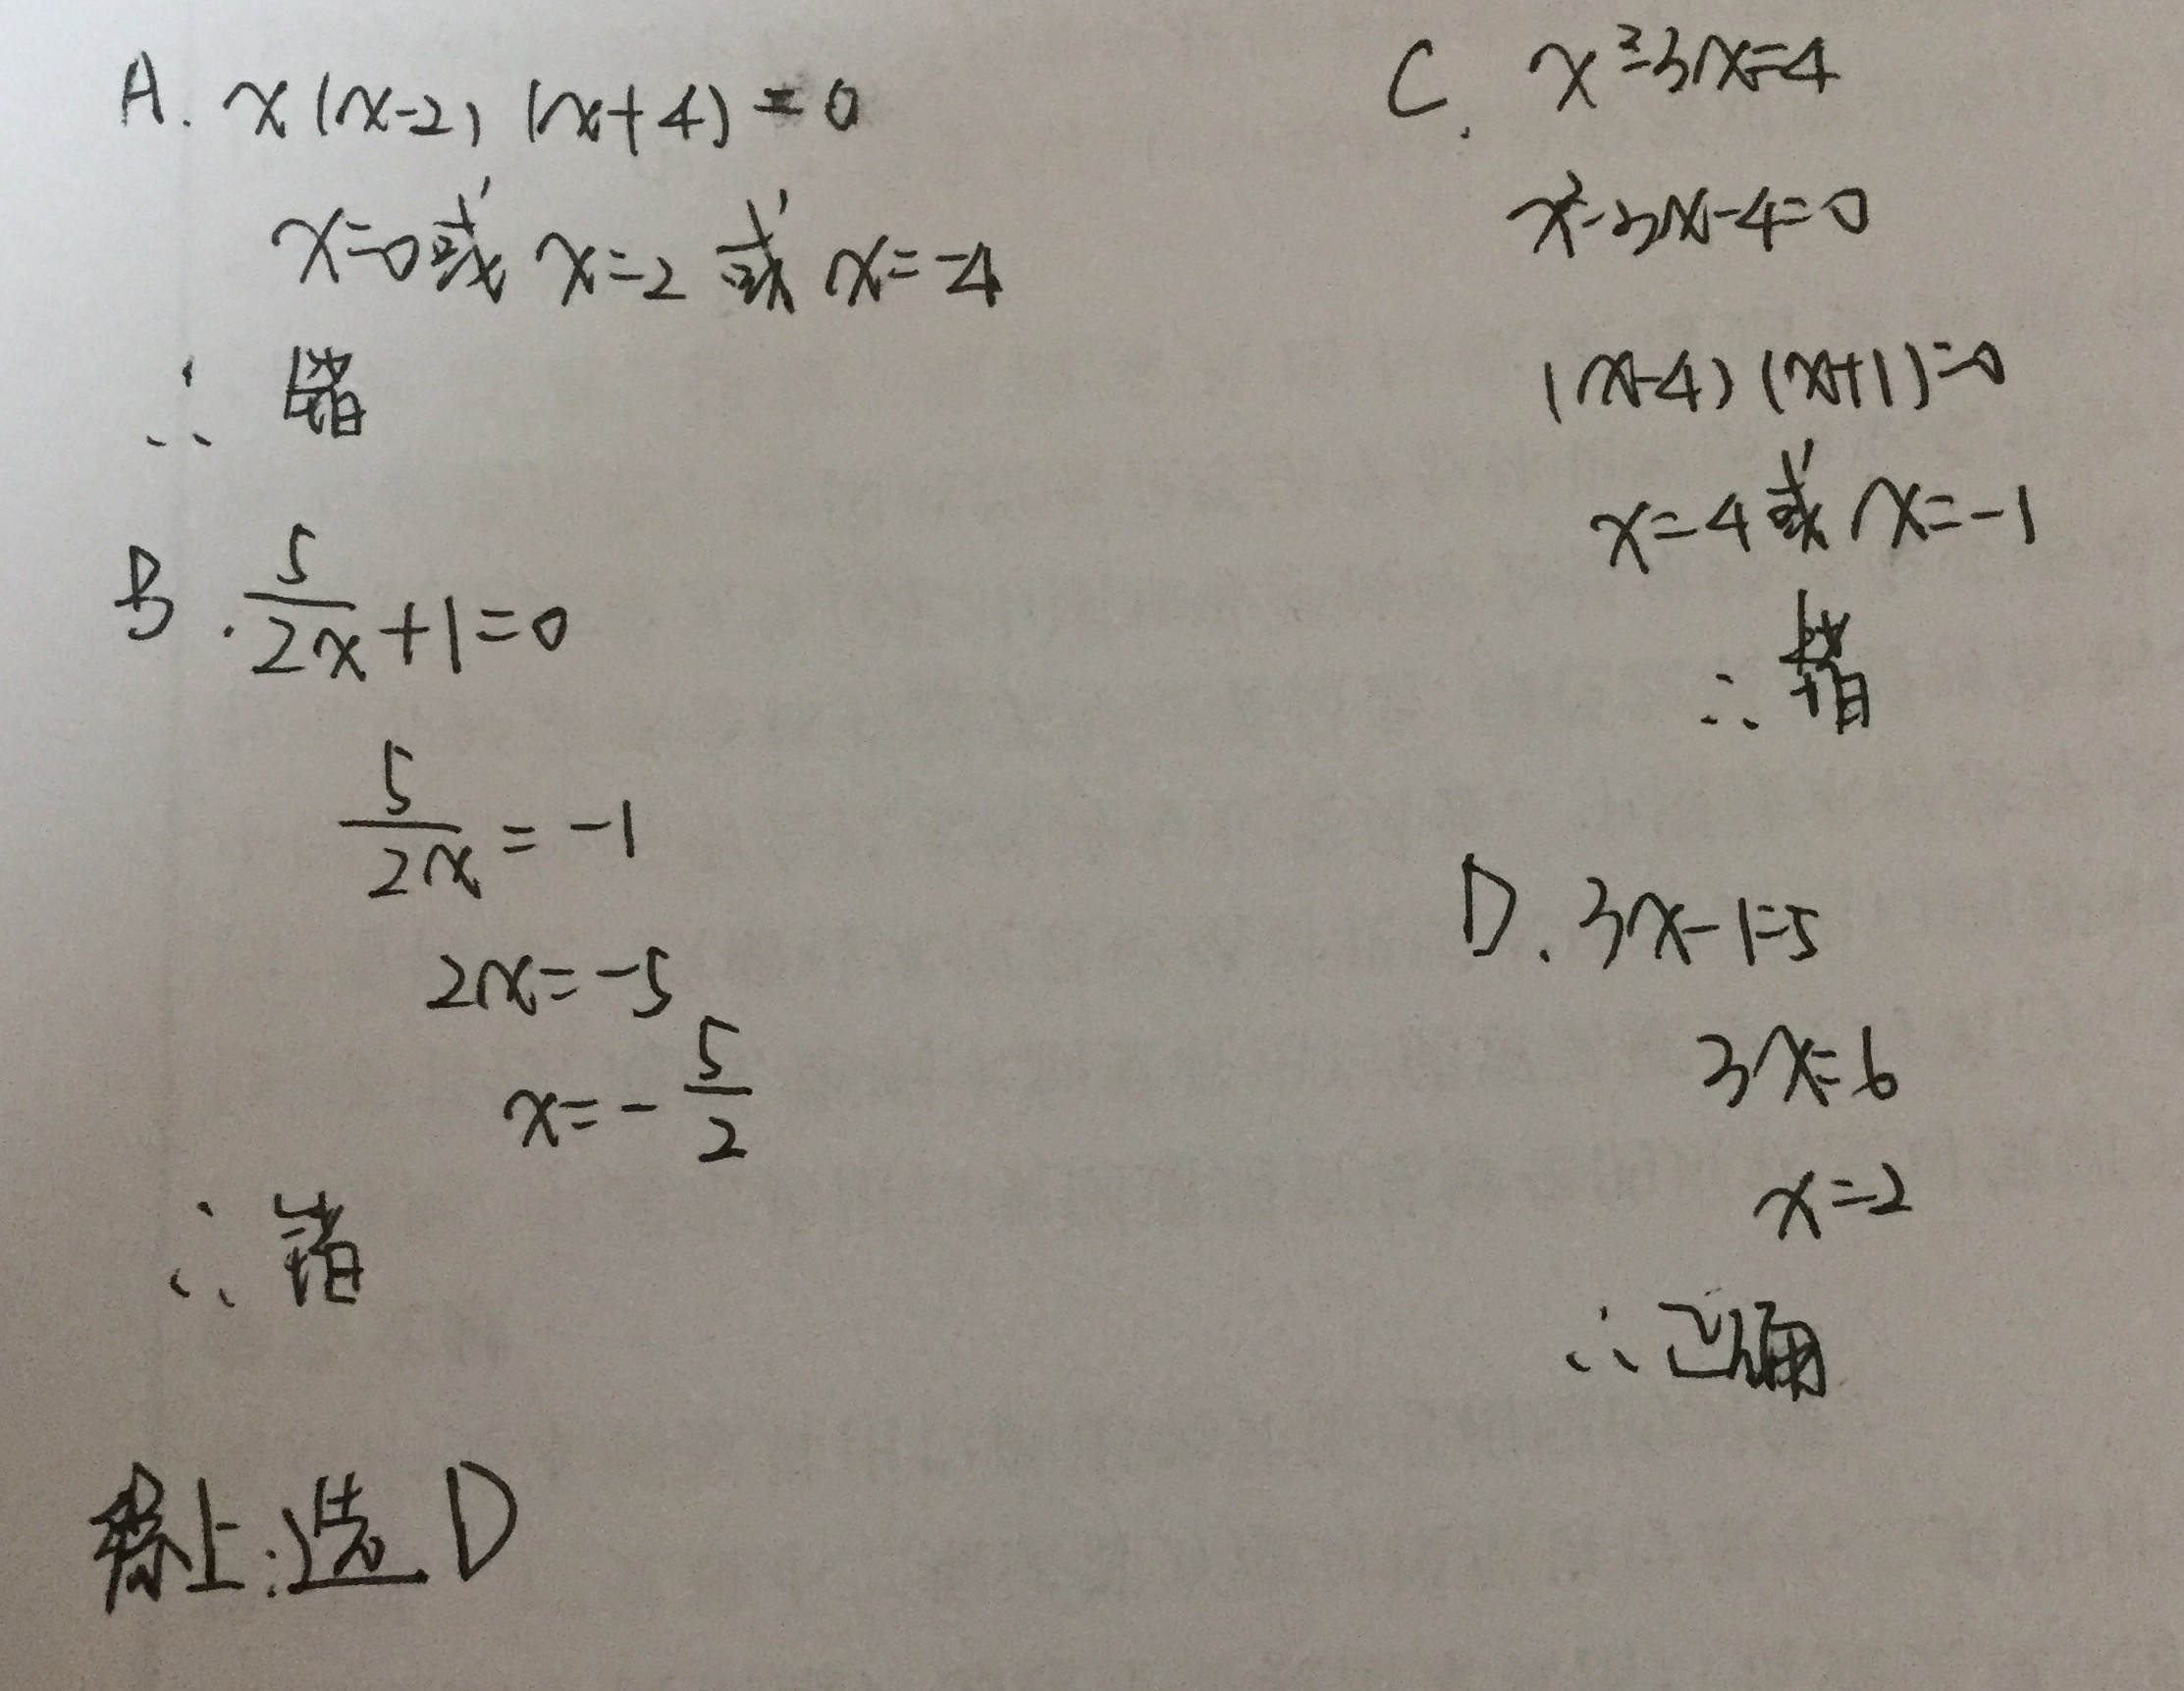 A. x(x-2)(x+4)=0
x=0或x=2或x=-4
∴ 错
B. 5/2x+1=0
5/2x=-1
2x=-5
x=-5/2
∴ 错
C. x²-3x=4
x²-3x-4=0
(x-4)(x+1)=0
x=4或x=-1
∴ 错
D. 3x-1=5
3x=6
x=2
∴ 正确
综上:选D